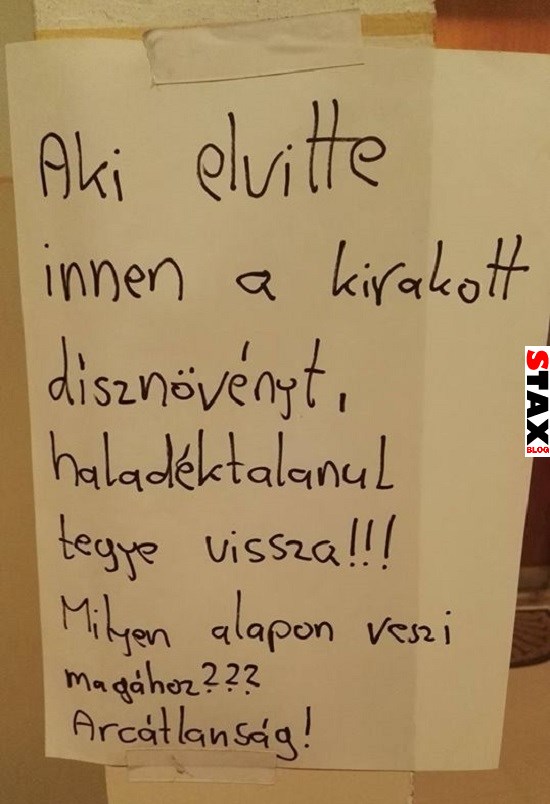 Aki elvitte
innen a kirakott
disznövényt,
haladéktalanul
tegye vissza!!!
Milyen alapon veszi
magához???
Arcátlanság!
STAX
BLOG